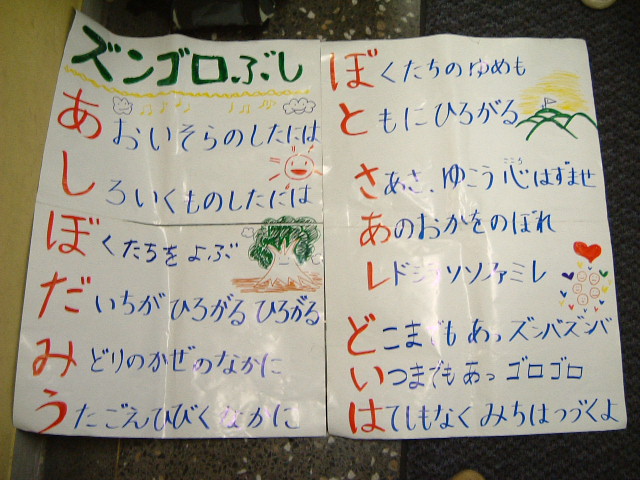 ズンゴロぶし
あおいそらのしたには
しろいくものしたには
ぼくたちをよぶ
だいちがひろがるひろがる
みどりのかぜのなかに
うたごえひびくなかに
ぼくたちのゆめも
ともにひろがる
さあさ、ゆこう心はずませ
こころ
あのおかをのぼれ
レドシラソソファミレ
どこまでもあっズンバズンバ
いつまでもあっゴロゴロ
はてしもなくみちはつづくよ